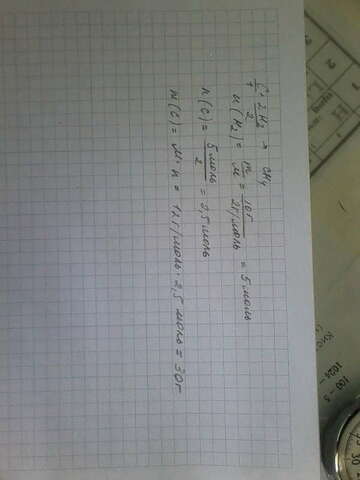 C + 2H₂ → CH₄
1 2
n(H₂) = m/M = 10г/2г/моль = 5 моль
n(C) = 5 моль/2 = 2,5 моль
m(C) = M · n = 12 г/моль · 2,5 моль = 30г
100 - 5
1024 -